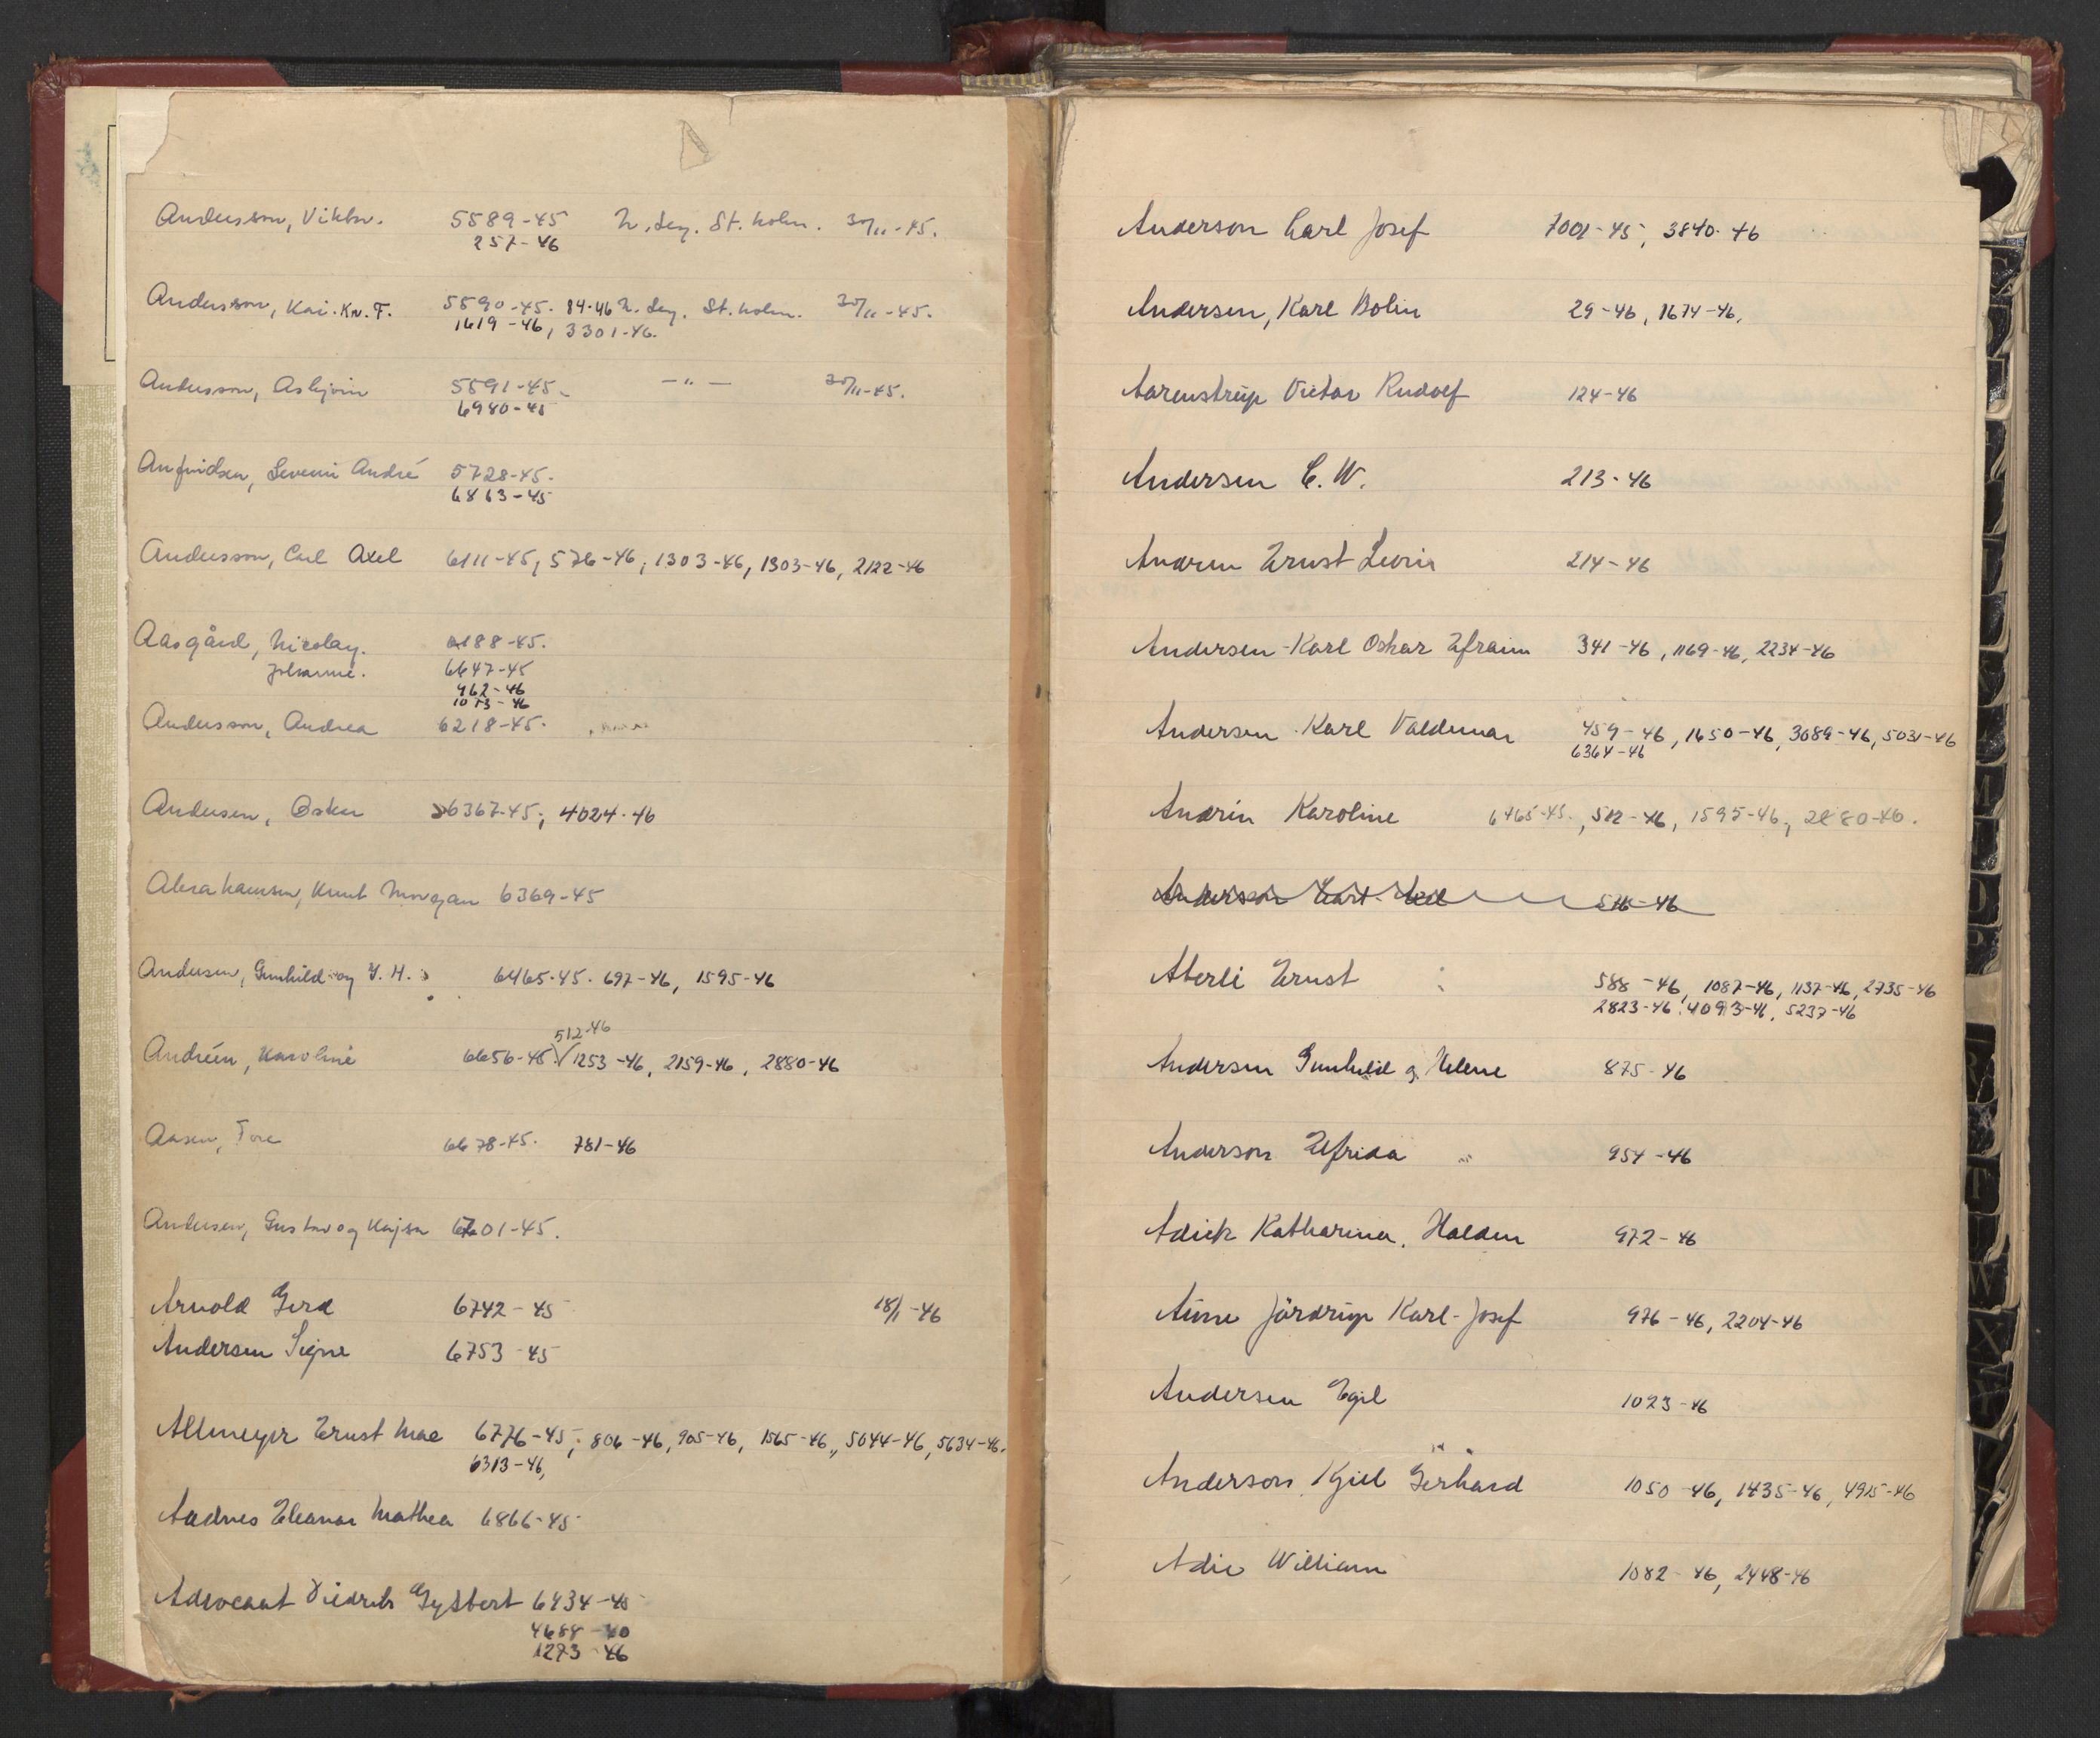 Andersson, Viktor. 5589-45 N. Leg. St. holm. 30/11-45.
257-46
Andersson, Kai. Kn. F. 5590-45. 84-46 N. Leg. St. holm. 30/11-45.
1619-46, 3301-46.
Andersson, Asbjörn 5591-45. -"- 30/11-45.
6980-45
Anfindsen, Severin André 5728-45.
6863-45
Andersson, Carl Axel 6111-45, 576-46, 1303-46, 1303-46, 2122-46
Aasgård, Nicolay. 6188-45.
Johanne. 6647-45
962-46
1073-46
Andersson, Andrea 6218-45.
Andersen, Oskar 6367-45; 4024-46
Abrahamsen, Knut Morgan 6369-45
Andersen, Gunhild og Y. H. 6465-45. 697-46, 1595-46
512-46
Andréen, Karoline 6656-45. √ 1253-46, 2159-46, 2880-46
Aasen, Tore 6678-45. 781-46
Andersen, Gustav og Kajsa 6701-45.
Arnold Gerd 6742-45 18/1-46
Andersen Signe 6753-45
Allmeyer Ernst Mac 6776-45; 806-46, 905-46, 1565-46, 5044-46, 5634-46.
6313-46,
Aadnes Eleanor Mathea 6866-45
Advocaat Diedrik Gysbert 6434-45
4688-40
1273-46
Anderson Carl Josef 7001-45, 3840-46
Andersen, Karl Bolin 29-46, 1674-46.
Aarenstrup Victor Rudolf 124-46
Andersen C. W. 213-46
Andren Ernst 214-46
Andersen Karl Oskar Efraim 341-46, 1169-46, 2234-46
Andersen Karl Valdemar 459-46, 1650-46, 3089-46, 5031-46
6364-46
Andrin Karoline 6465-45., 512-46, 1595-46, 2880-46.
Anderson Carl Axel 576-46
Aberli Ernst 588-46, 1087-46, 1137-46, 2735-46
2823-46, 4093-46, 5237-46
Andersen Gunhild og Helene 875-46
Anderson Elfrida 954-46
Adick Katharina, Halden 972-46
Karl-Josef 976-46, 2204-46
Andersen Egil 1023-46
Anderson Kjell Gerhard 1050-46, 1435-46, 4915-46
Adie William 1082-46, 2448-46